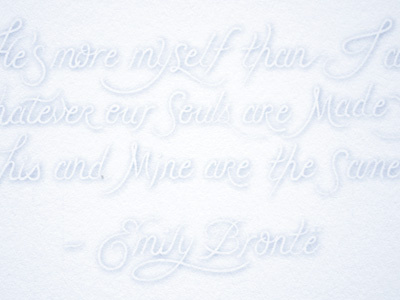 He's more myself than I a
hatever our Souls are Made
his and Mine are the Same
– Emily Brontë